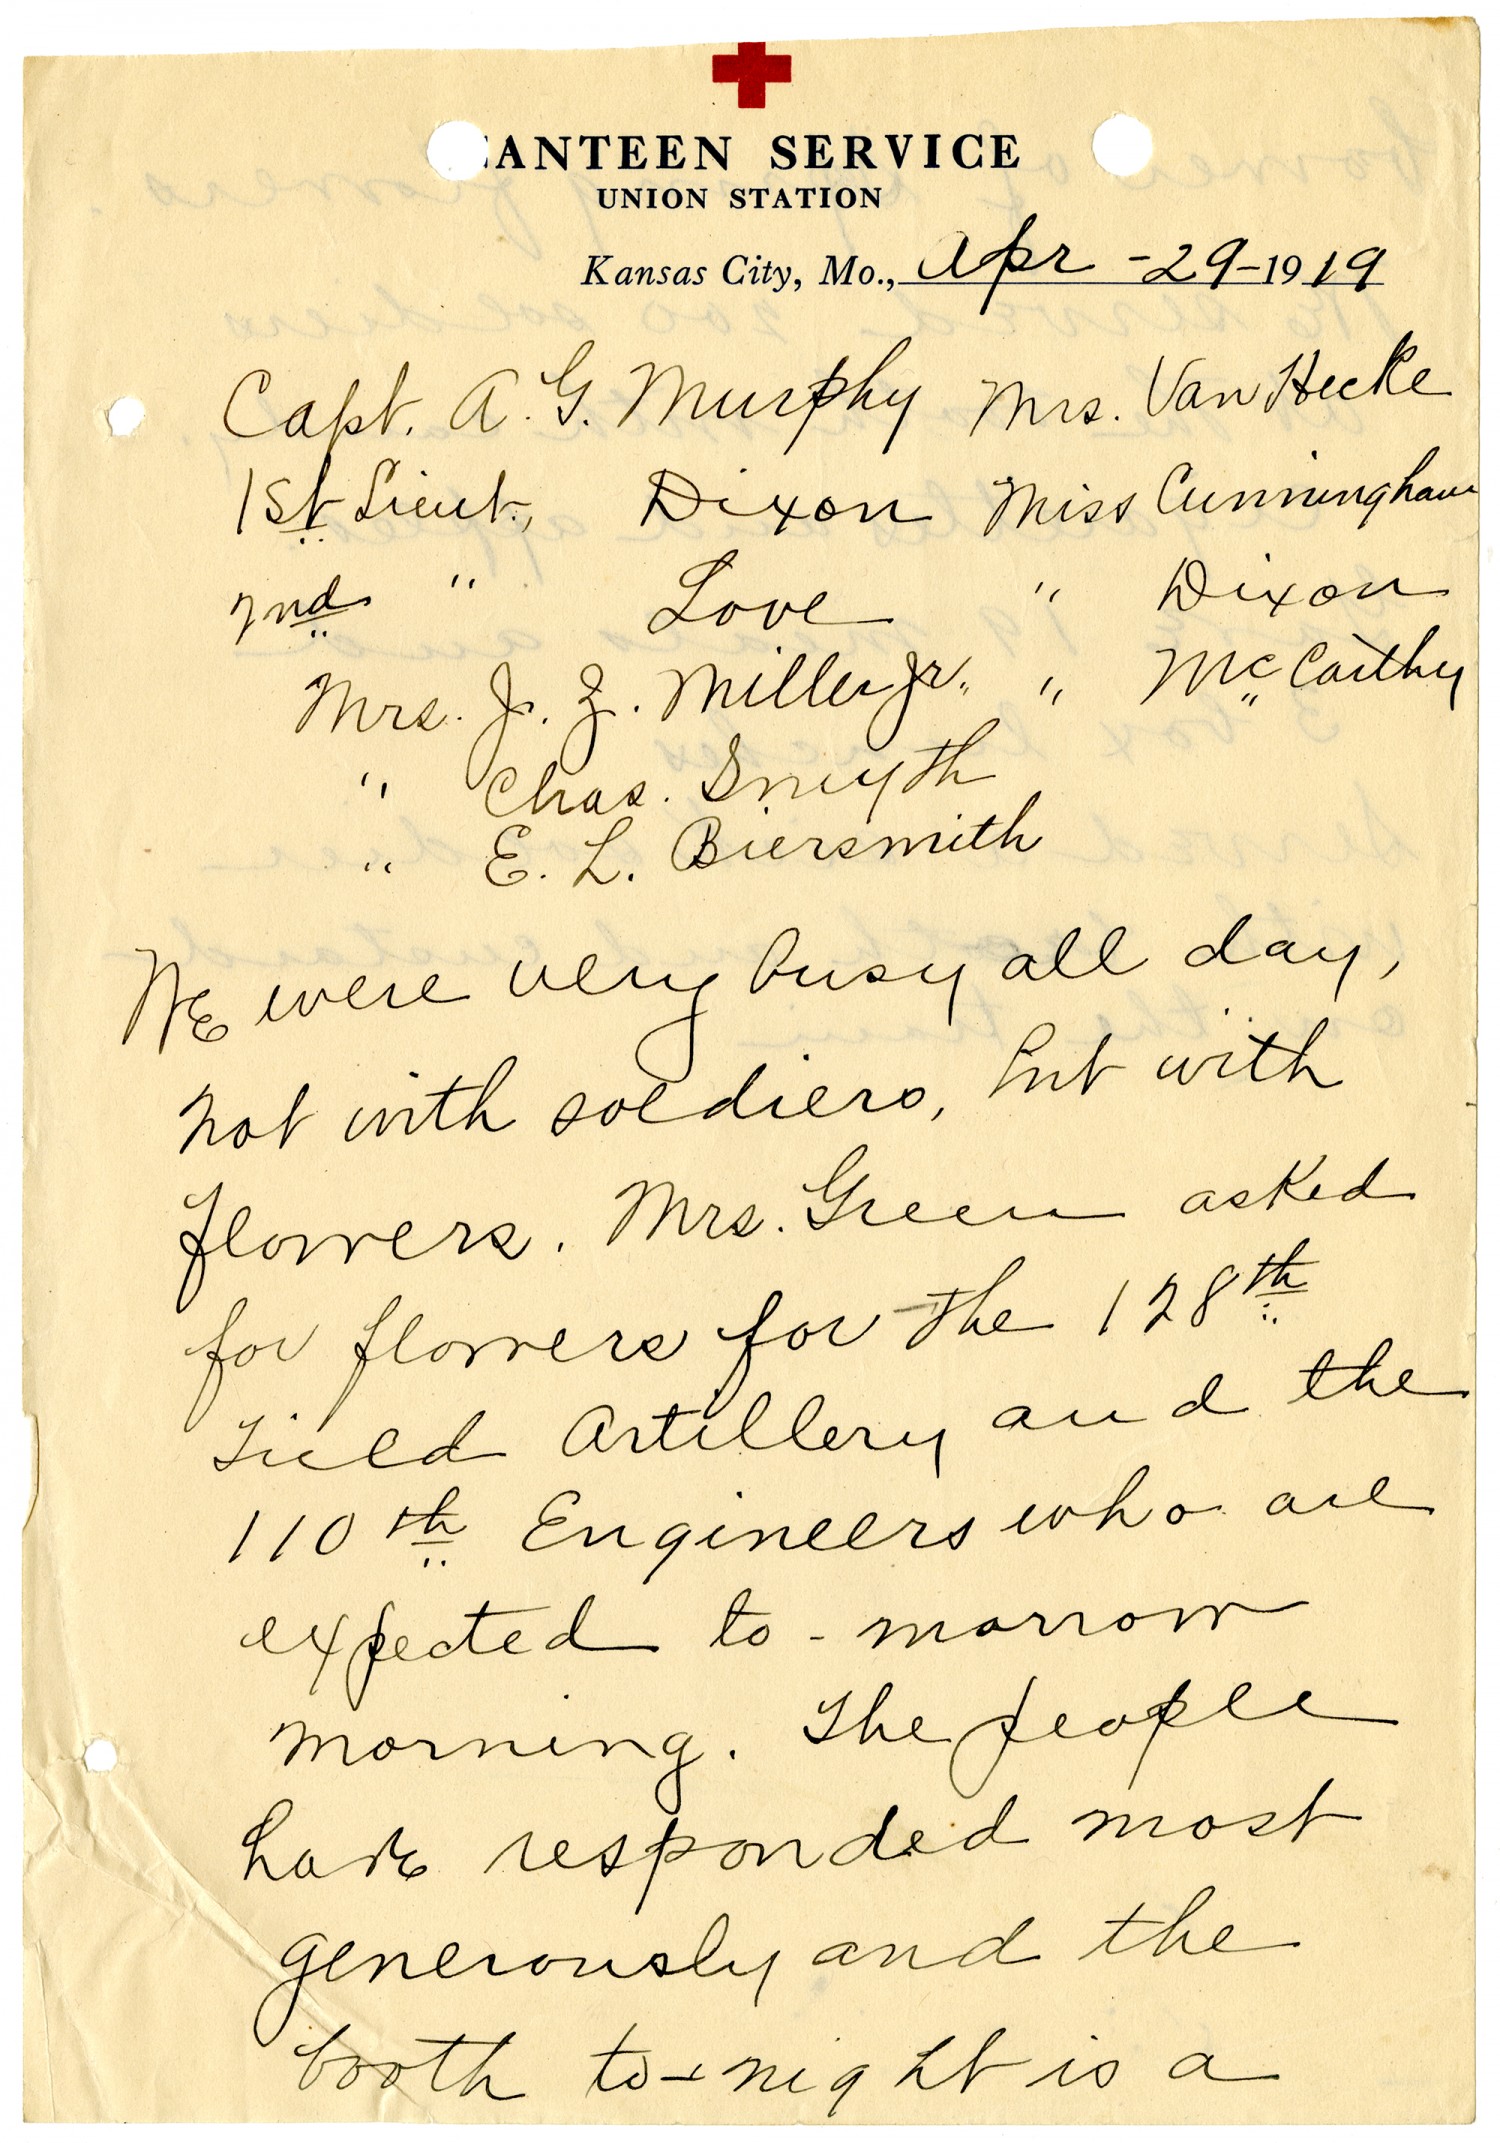 CANTEEN SERVICE
UNION STATION
Kansas City, Mo., Apr - 29 - 1919
Capt. A. G. Murphy Mrs. Van Hecke
1st Lieut., Dixon Miss Cunningham
2nd " Love " Dixon
Mrs. J. Z. Miller Jr. " McCarthy
" Chas. Smyth
" E. L. Biersmith
We were very busy all day,
not with soldiers, but with
flowers. Mrs. Green asked
for flowers for the 128th
Field Artillery and the
110th Engineers who are
expected to-morrow
morning. The people
have responded most
generously and the
booth to-night is a